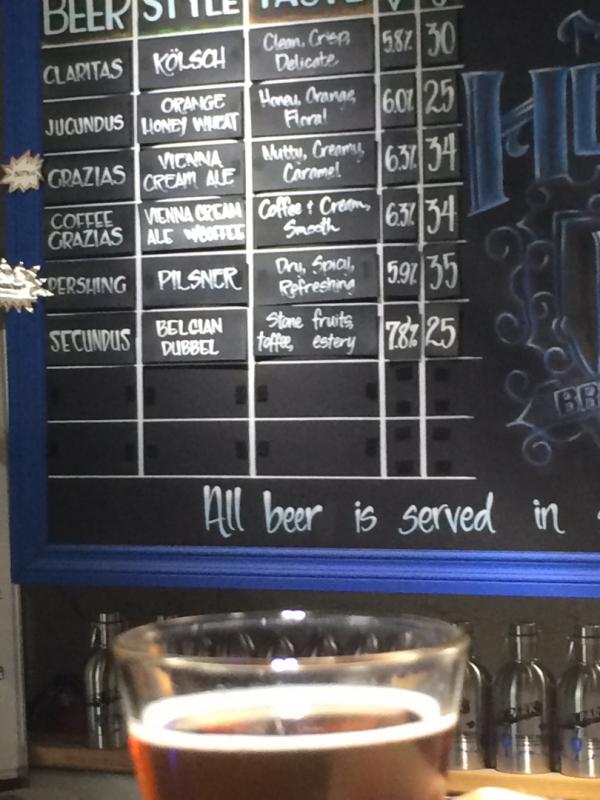 BEER STYLE TASTE
CLARITAS KÖLSCH Clean, Crisp, Delicate 5.8% 30
JUCUNDUS ORANGE HONEY WHEAT Honey, Orange, Floral 6.0% 25
GRAZIAS VIENNA CREAM ALE Nutty, Creamy, Caramel 6.3% 34
COFFEE GRAZIAS VIENNA CREAM ALE W/COFFEE Coffee + Cream, Smooth 6.3% 34
PERSHING PILSNER Dry, Spicy, Refreshing 5.9% 35
SECUNDUS BELGIAN DUBBEL Stone fruits, toffee, estery 7.8% 25
All beer is served in